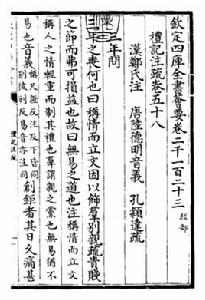 欽定四庫全書薈要卷二千一百二十三 經部
禮記注疏卷五十八
漢鄭氏注 唐陸德明音義 孔穎達疏
三年問
三年之喪何也曰稱情而立文因以飾羣别親疏貴賤
之節而弗可損益也故曰無易之道也注稱情而立文
稱人之情輕重而制其禮也羣謂親之黨也無易猶不
易也音義稱尺證反注及下皆同别彼列反易音亦注同創鉅者其日久痛甚